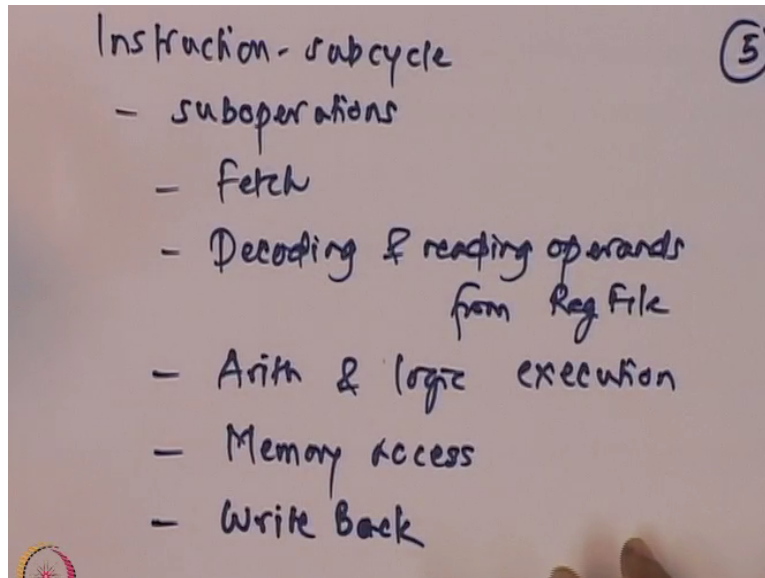 Instruction - subcycle
5
- suboperations
- Fetch
- Decoding & reading operands
from Reg File
- Arith & logic execution
- Memory access
- Write Back